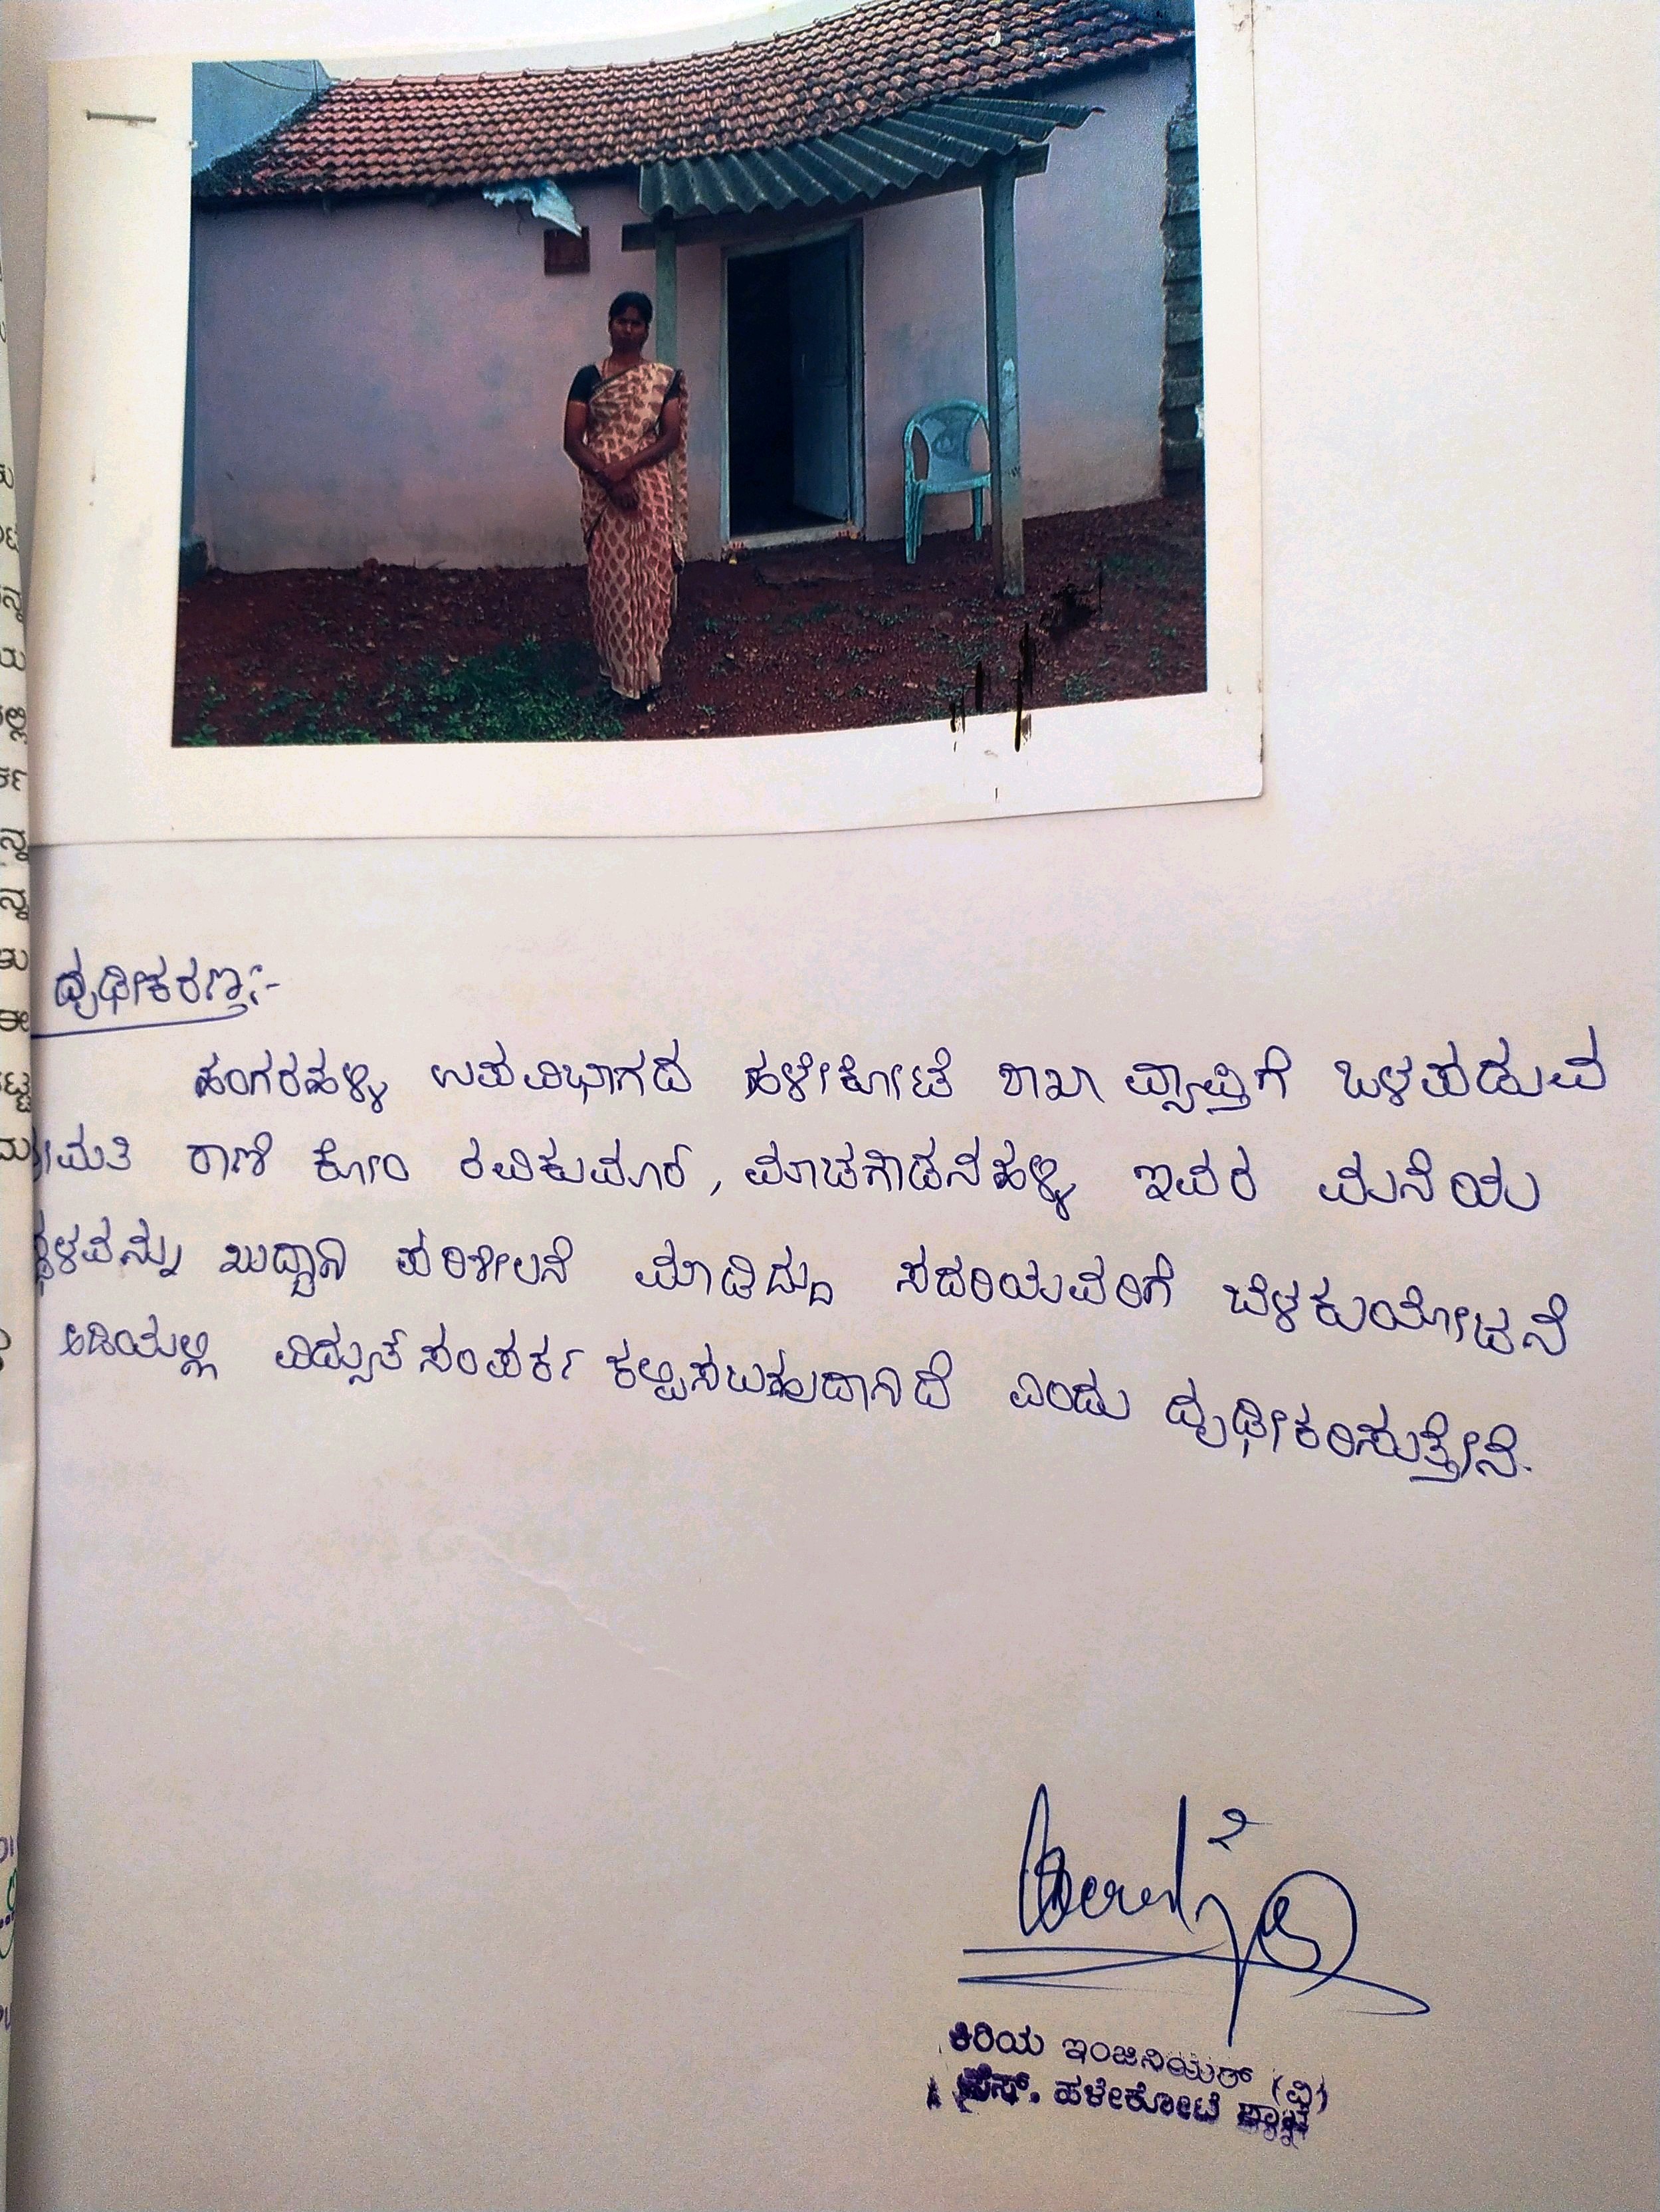 ದೃಢೀಕರಣ:-
ಹಂಗರಹಳ್ಳಿ ಉಪವಿಭಾಗದ ಹಳೇಕೋಟೆ ಶಾಖಾ ವ್ಯಾಪ್ತಿಗೆ ಒಳಪಡುವ
ಶ್ರೀಮತಿ ರಾಣಿ ಕೋಂ ರವಿಕುಮಾರ್, ಮಾಚಗೌಡನಹಳ್ಳಿ ಇವರ ಮನೆಯ
ಸ್ಥಳವನ್ನು ಖುದ್ದಾಗಿ ಪರಿಶೀಲನೆ ಮಾಡಿದ್ದು ಸದರಿಯವರಿಗೆ ಬೆಳಕುಯೋಜನೆ
ಅಡಿಯಲ್ಲಿ ವಿದ್ಯುತ್ ಸಂಪರ್ಕ ಕಲ್ಪಿಸಬಹುದಾಗಿದೆ ಎಂದು ದೃಢೀಕರಿಸುತ್ತೇನೆ.
ಕಿರಿಯ ಇಂಜಿನಿಯರ್ (ವಿ)
ಹಳೇಕೋಟೆ ಶಾಖೆ